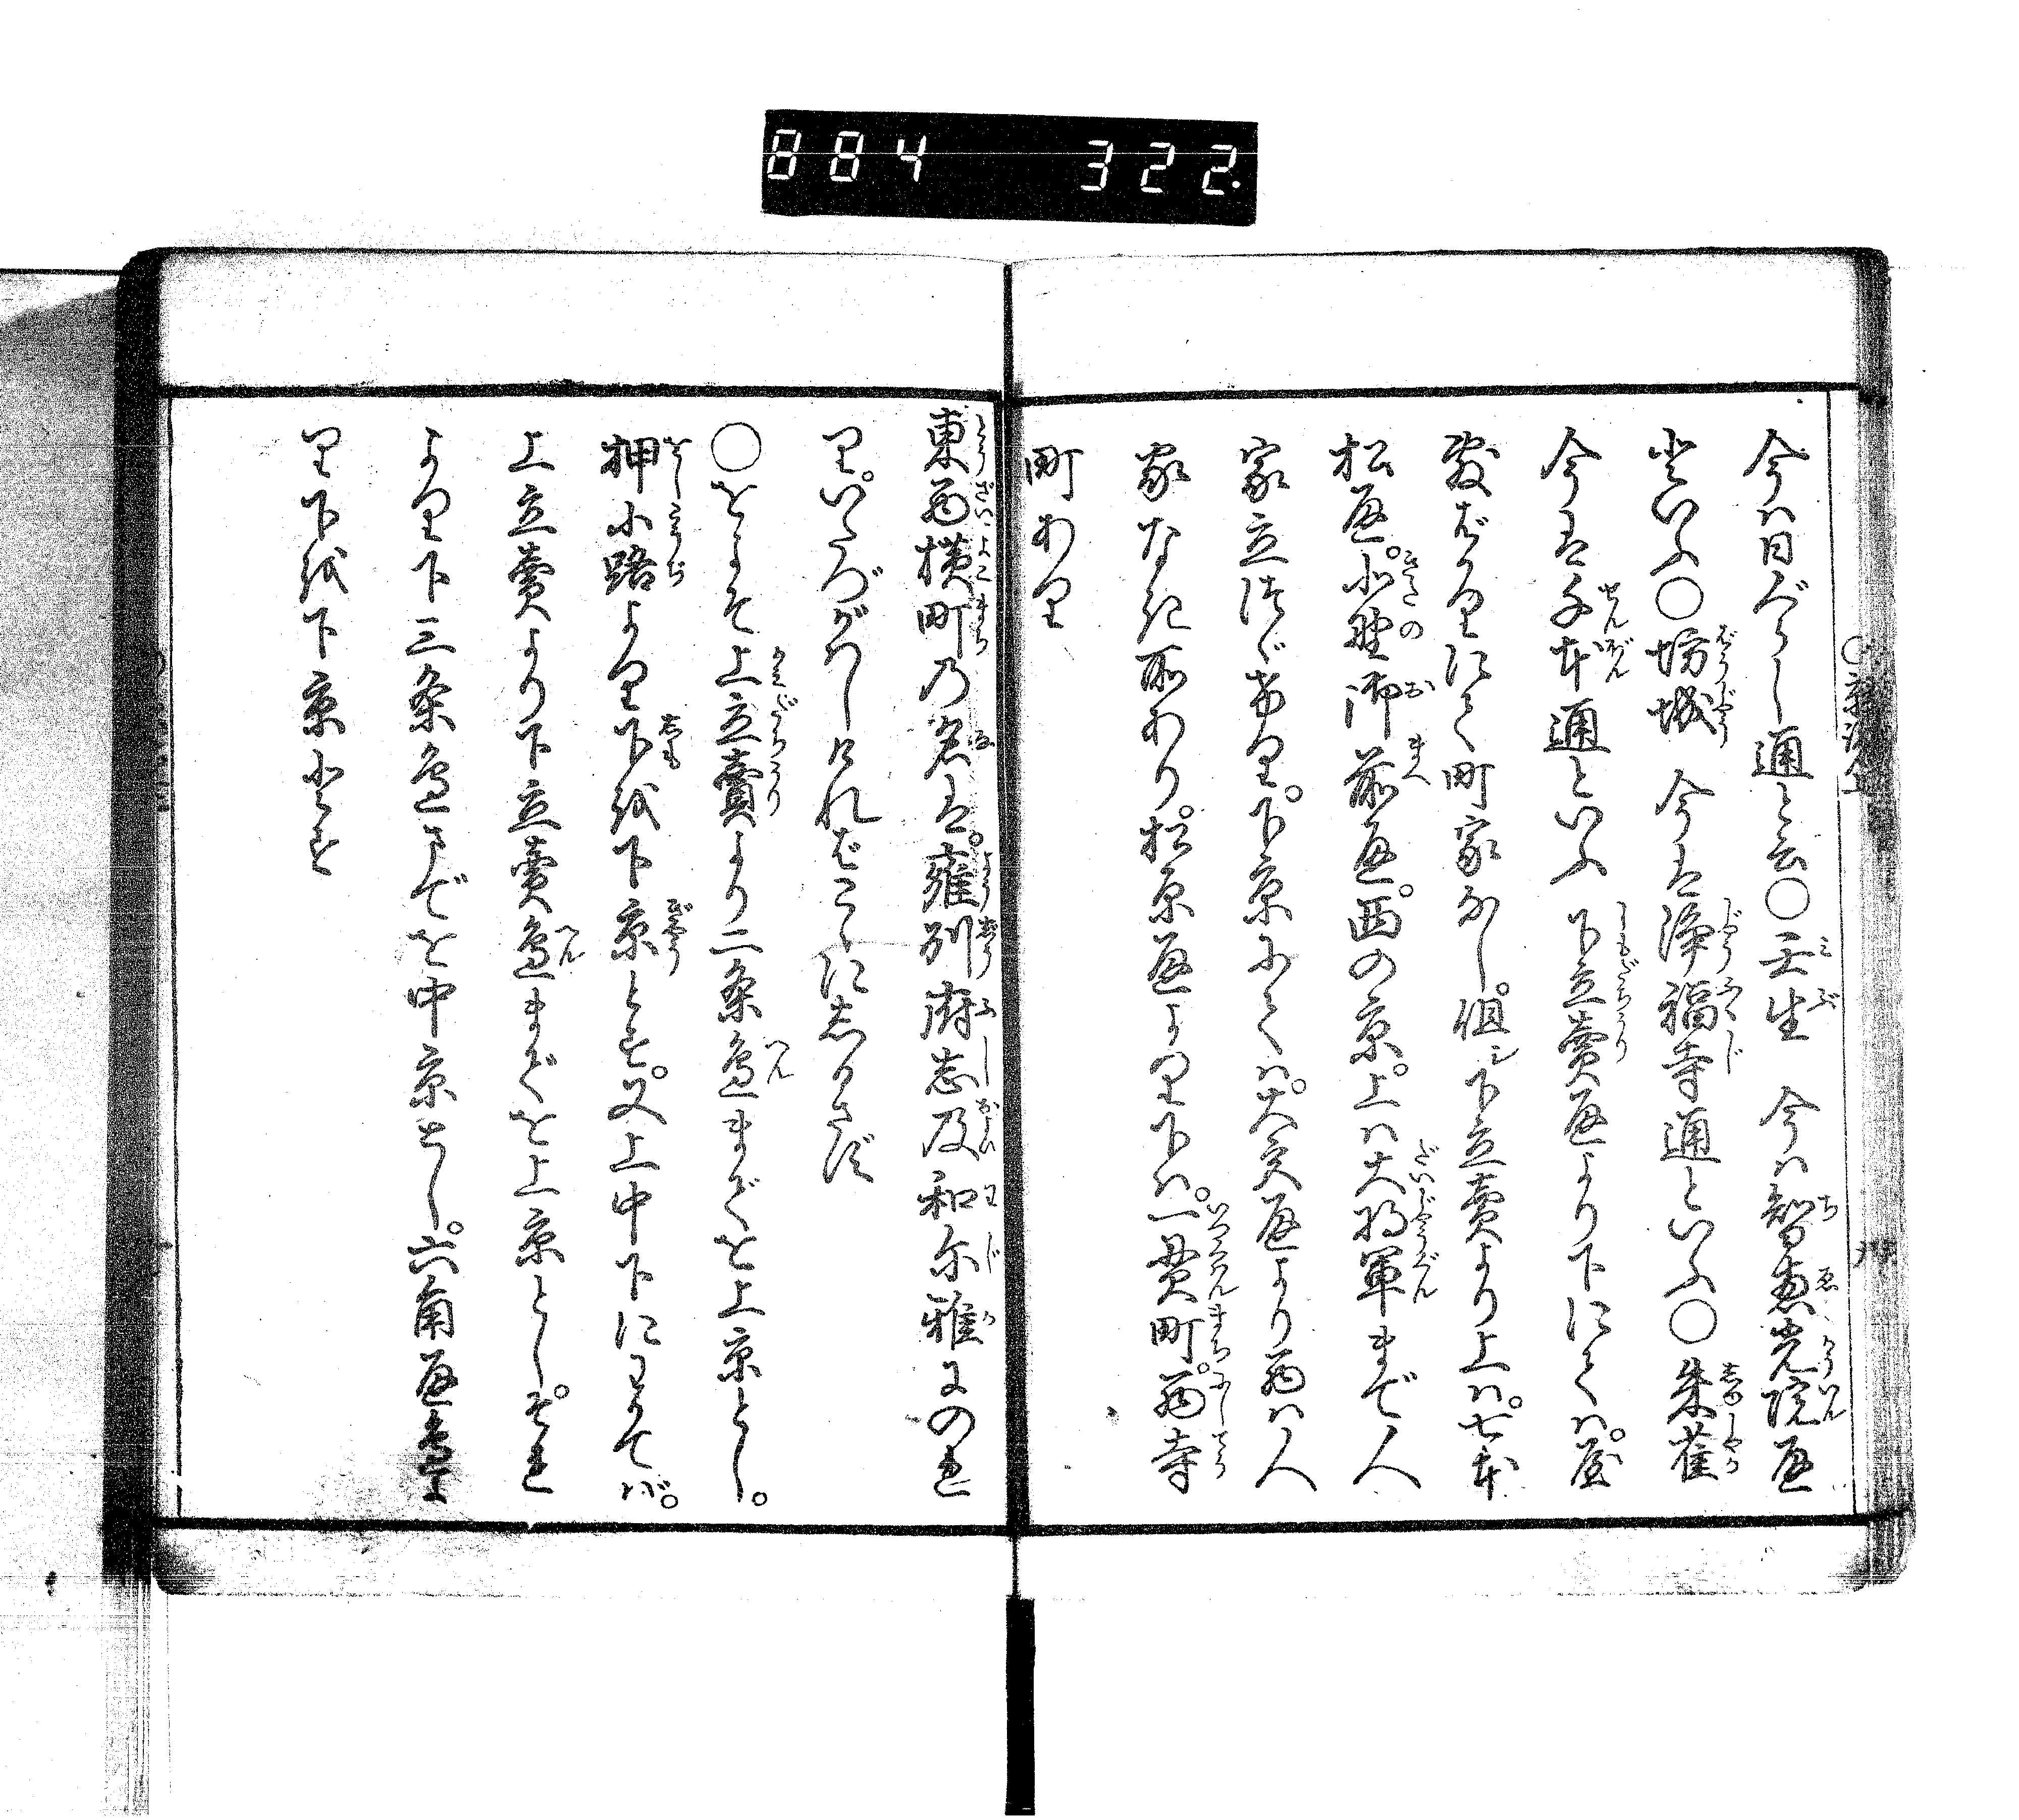 884 322
今ハ日ぐらし通と云〇壬生 今ハ智恵光院通
といふ〇坊城 今は浄福寺通といふ〇朱雀
今は千本通といふ 下立賣通より下にてハ。屋
敷ばかりにて町家なし。但シ下立賣より上ハ。七本
松通。北野御前通。西の京。上ハ大将軍まで人
家立つゞけり。下京にてハ。大宮通より西ハ人
家なき所あり。松原通より下ハ。一貫町。西寺
町あり
東西横町の名は。雍州府志及和尓雅にのれ
り。いたづがはしければこゝにしるさず
〇をよそ上立賣より二条邉までを上京とし。
押小路より下を下京とす。又上中下にわかてバ。
上立賣より下立賣邉までを上京とし。それ
より下三条邉までを中京とし。六角通よ
り下を下京とす